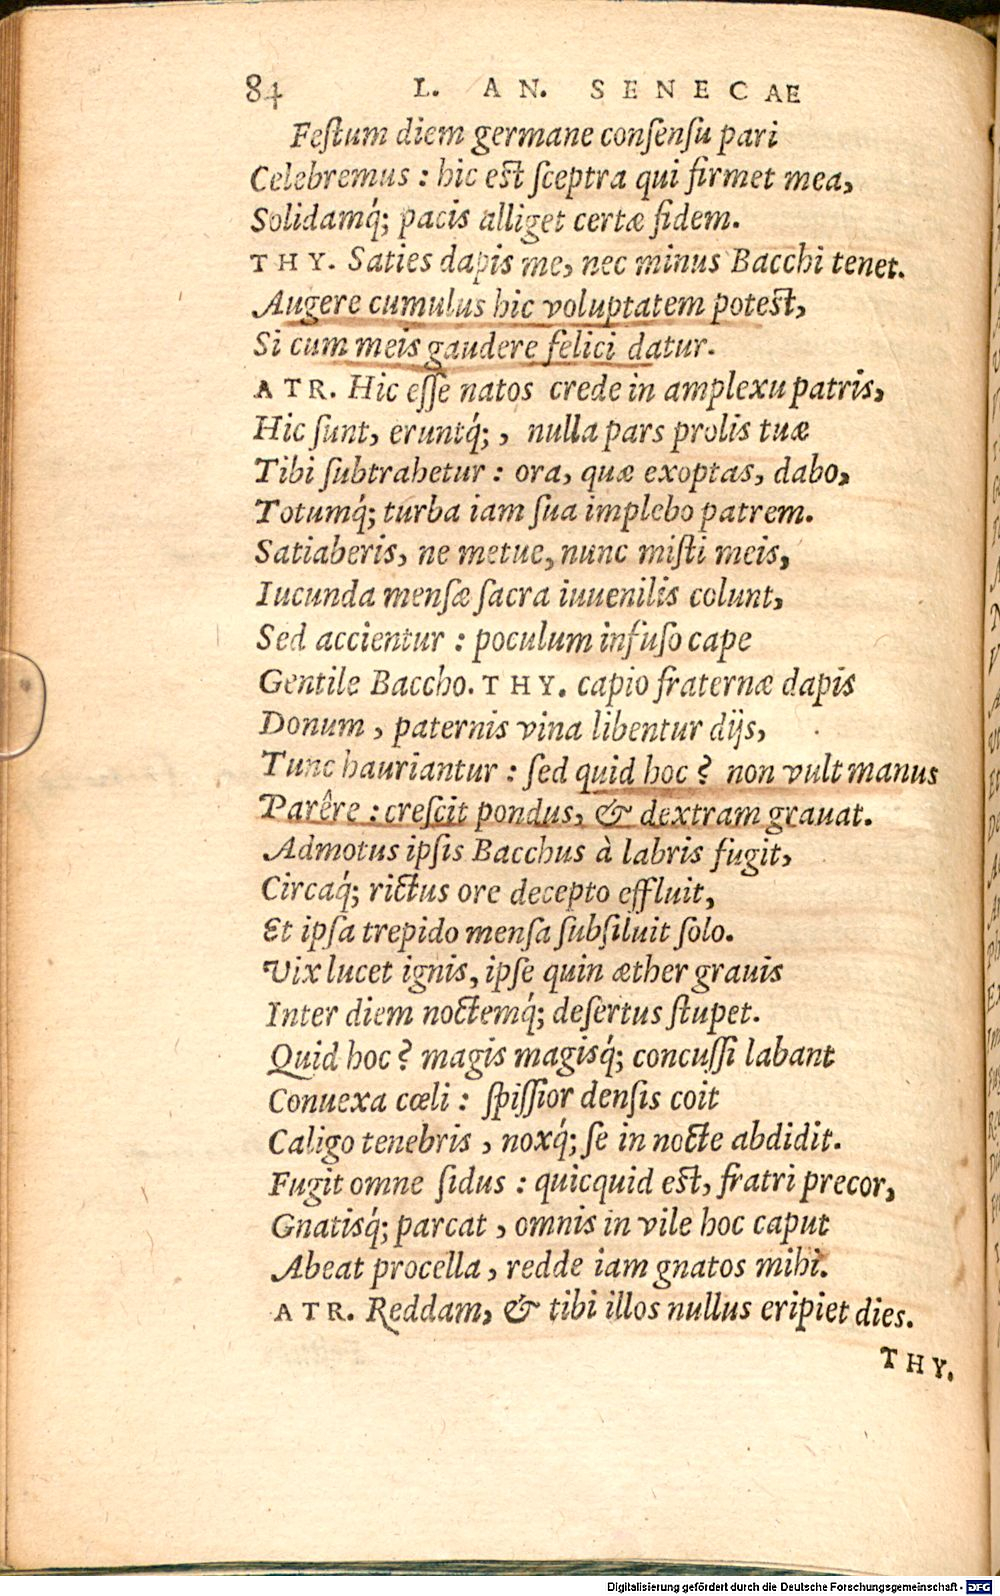 84 L. AN. SENECAE
Feſtum diem germane conſenſu pari
Celebremus : hic eſt ſceptra qui firmet mea,
Solidamq́; pacis alliget certæ fidem.
THY. Saties dapis me, nec minus Bacchi tenet.
Augere cumulus hic voluptatem poteſt,
Si cum meis gaudere felici datur.
ATR. Hic eſſe natos crede in amplexu patris,
Hic ſunt, eruntq́; , nulla pars prolis tuæ
Tibi ſubtrahetur : ora, quæ exoptas, dabo,
Totumq́; turba iam ſua implebo patrem.
Satiaberis, ne metue, nunc miſti meis,
Iucunda menſæ ſacra iuuenilis colunt,
Sed accientur : poculum infuſo cape
Gentile Baccho. THY. capio fraternæ dapis
Donum , paternis vina libentur dijs,
Tunc hauriantur : ſed quid hoc? non vult manus
Parêre : creſcit pondus, & dextram grauat.
Admotus ipſis Bacchus à labris fugit,
Circaq́; rictus ore decepto effluit,
Et ipſa trepido menſa ſubſiluit ſolo.
Vix lucet ignis, ipſe quin æther grauis
Inter diem noctemq́; deſertus ſtupet.
Quid hoc? magis magisq́; concuſſi labant
Conuexa cœli : ſpiſſior denſis coit
Caligo tenebris , noxq́; ſe in nocte abdidit.
Fugit omne ſidus : quicquid eſt, fratri precor,
Gnatisq́; parcat , omnis in vile hoc caput
Abeat procella , redde iam gnatos mihi.
ATR. Reddam, & tibi illos nullus eripiet dies.
THY.
Digitalisierung gefördert durch die Deutsche Forschungsgemeinschaft - DFG